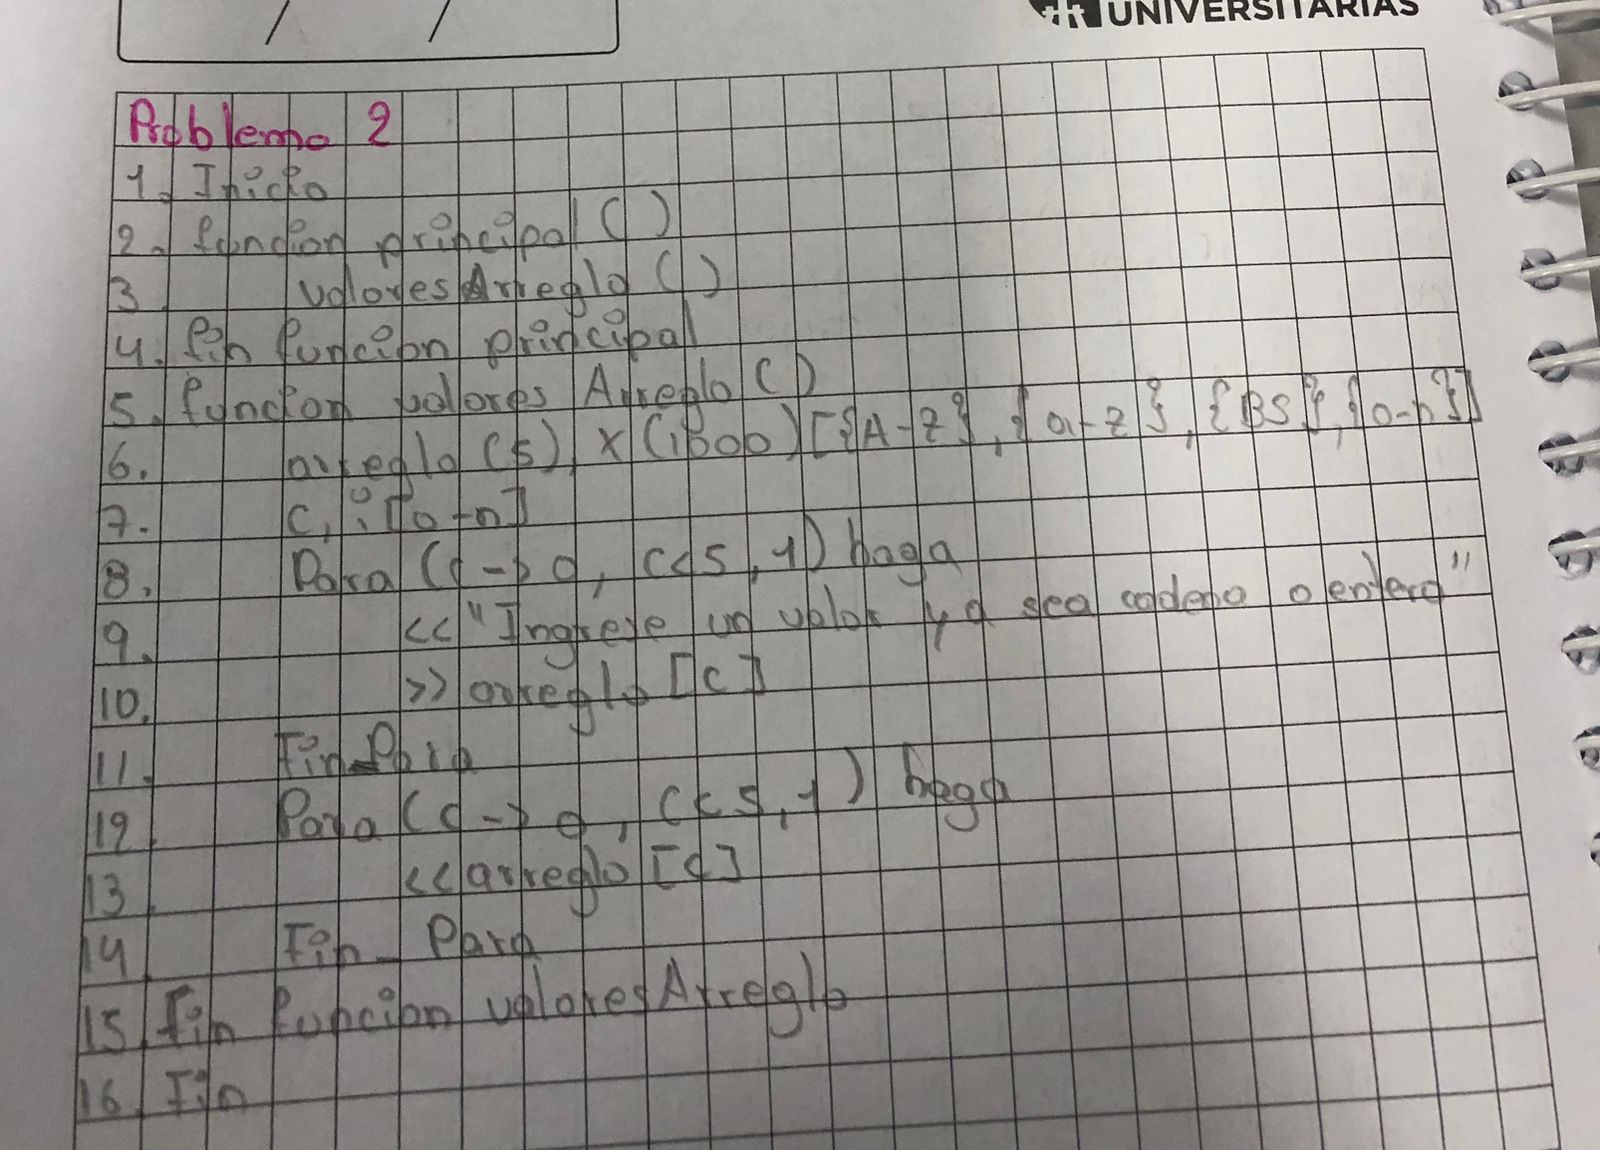 UNIVERSITARIAS
/ /
Problema 2
1. Inicio
2. funcion principal ( )
3 valoresArreglo ( )
4. fin funcion principal
5. funcion valores Arreglo ( )
6. arreglo (5) x (1000) [{A-Z}, {a-z}, {BS}, {0-n}]
7. c, i [0-n]
8. Para (c -> 0, c<5, 1) haga
9. << "Ingrese un valor ya sea cadena o entero"
10. >> arreglo [c]
11. Fin_Para
12. Para (c -> 0, c<5, 1) haga
13. << arreglo [c]
14. Fin_Para
15. fin funcion valoresArreglo
16. Fin